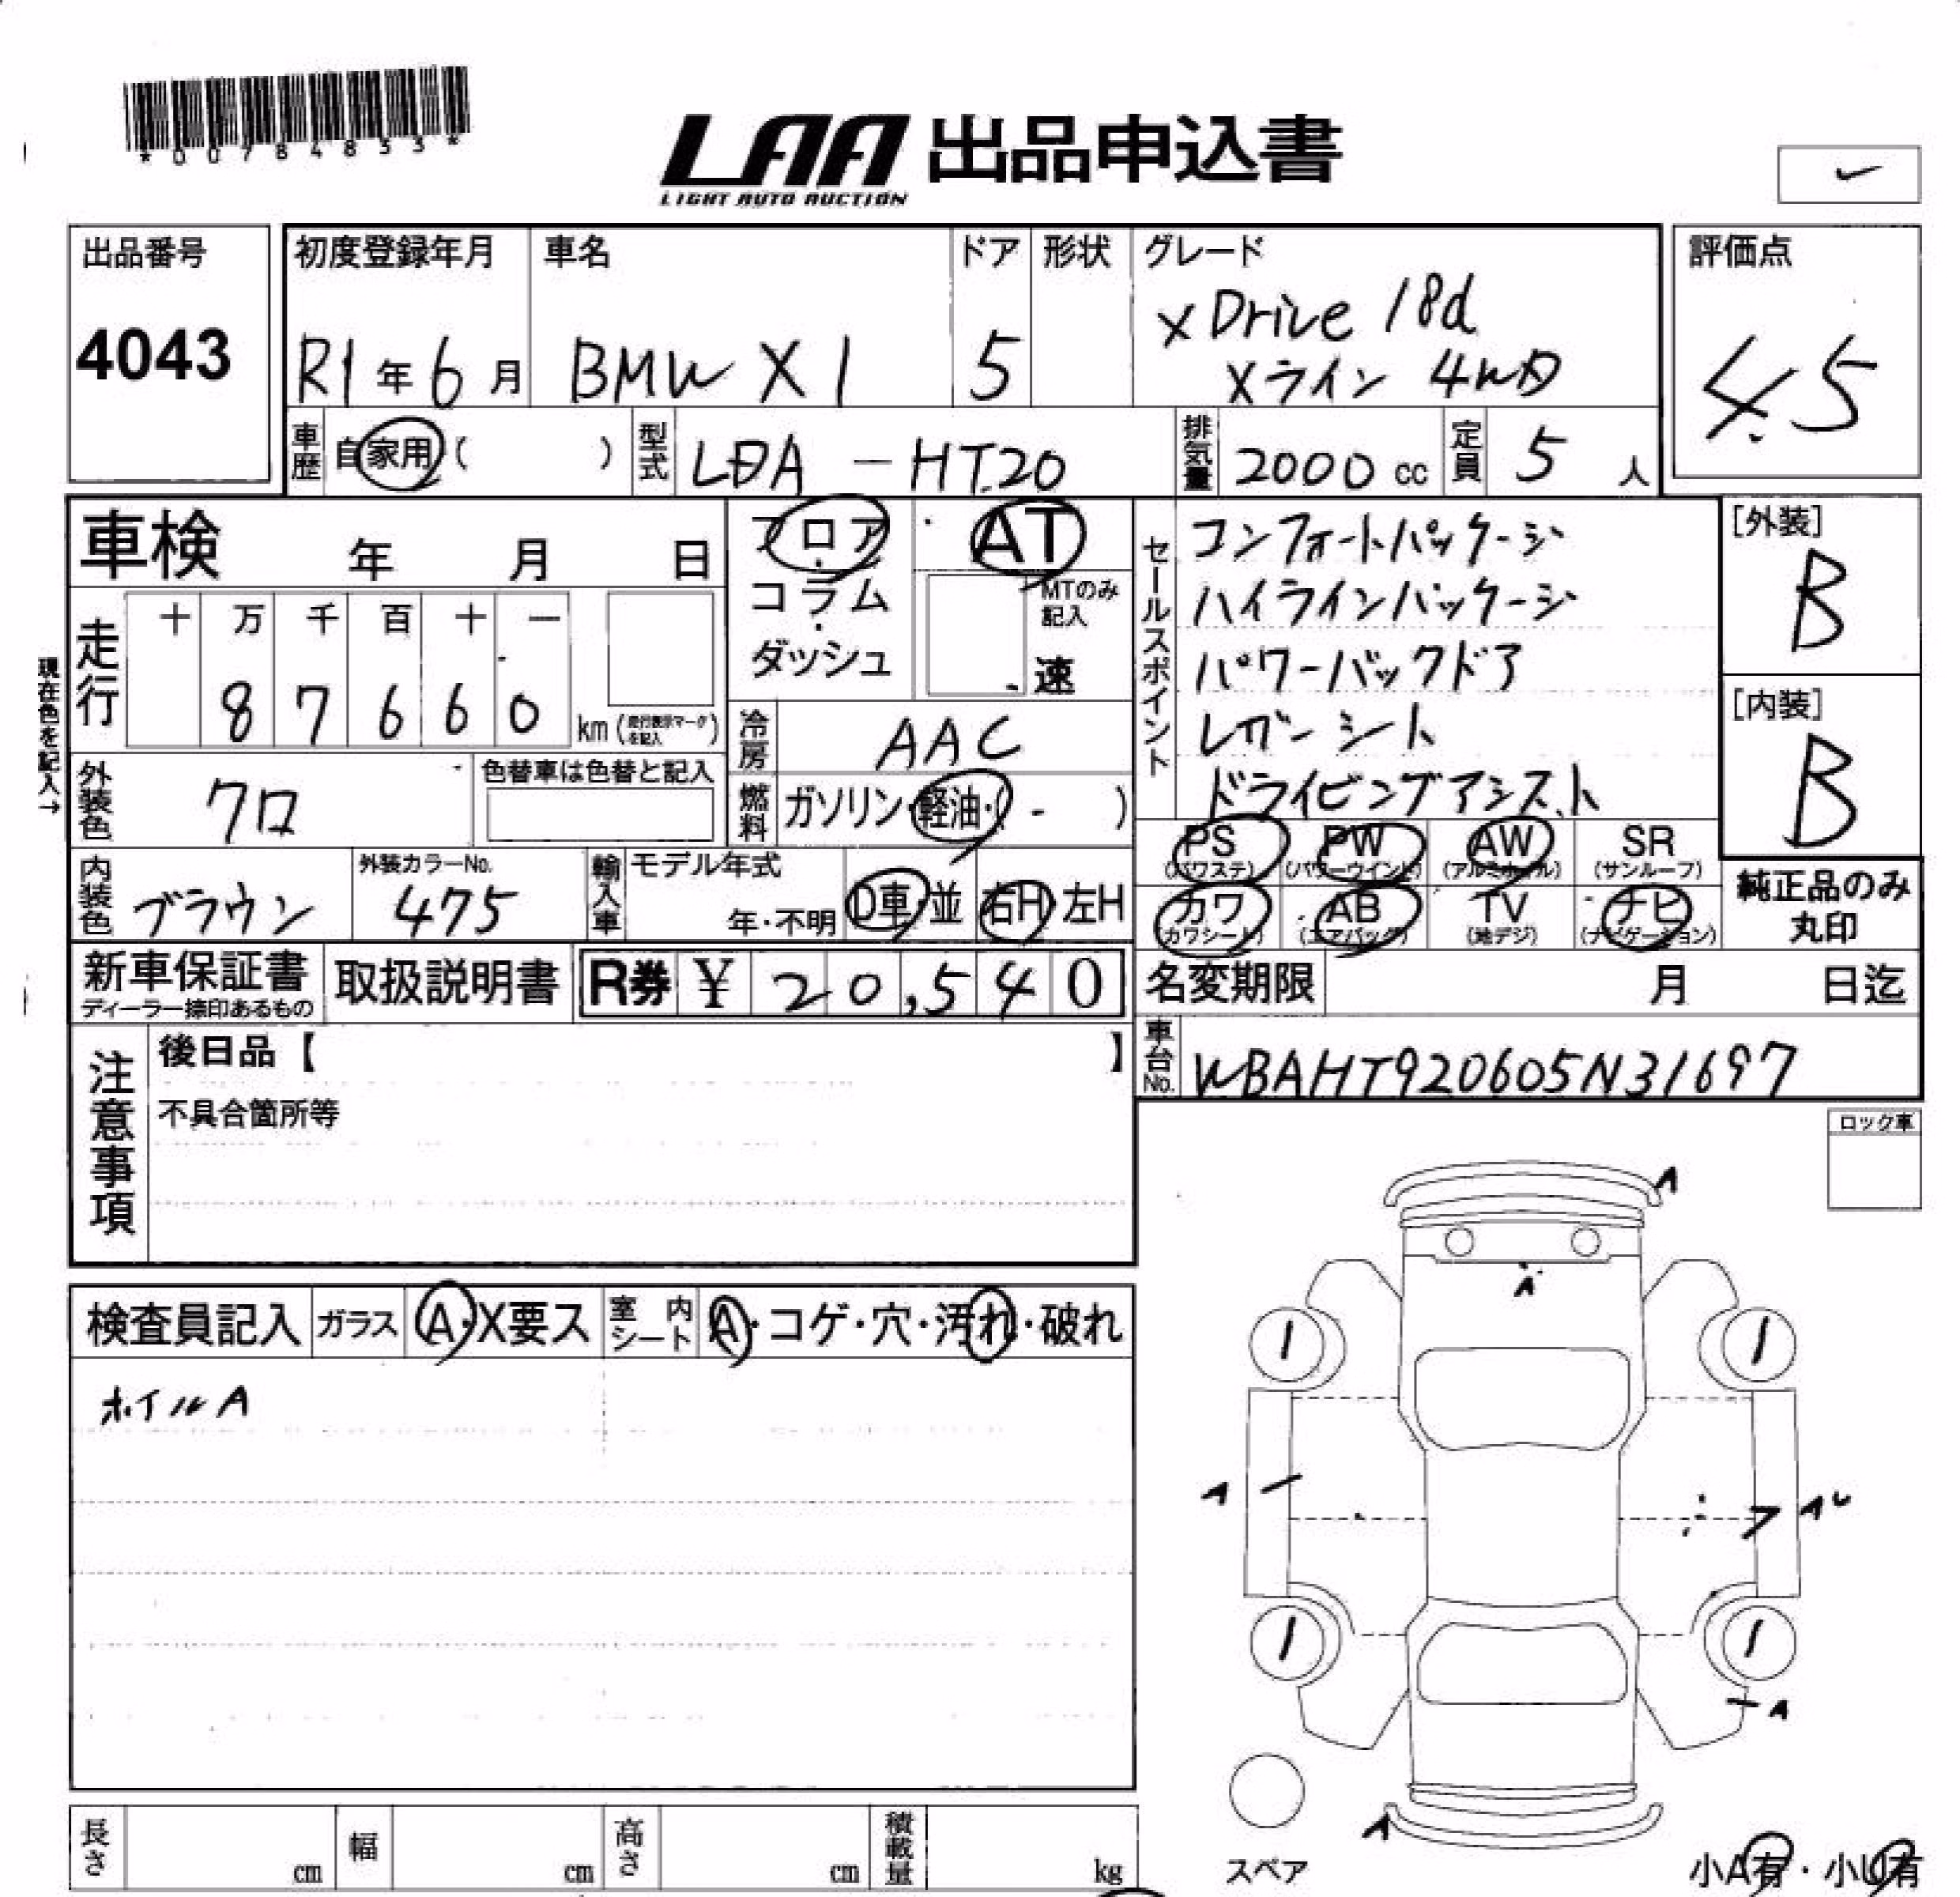 *00784833*
LAA 出品申込書
LIGHT AUTO AUCTION
出品番号
4043
初度登録年月
R1年6月
車名
BMW X1
ドア
5
形状
グレード
xDrive 18d
Xライン 4WD
評価点
4.5
車歴
自家用 ( )
型式
LDA-HT20
排気量
2000 cc
定員
5 人
車検 年 月 日
フロア
コラム
ダッシュ
AT
MTのみ
記入
速
セールスポイント
コンフォートパッケージ
ハイラインパッケージ
パワーバックドア
レザーシート
ドライビングアシスト
[外装]
B
[内装]
B
現在色を記入→
走行
十 万 千 百 十 一
8 7 6 6 0 km (走行表示マークを記入)
冷房
AAC
燃料
ガソリン・軽油・( - )
外装色
クロ
色替車は色替と記入
内装色
ブラウン
外装カラーNo.
475
輸入車
モデル年式
年・不明
D車・並
右H・左H
PS
(パワステ)
PW
(パワーウインド)
AW
(アルミホイル)
SR
(サンルーフ)
カワ
(カワシート)
AB
(エアバッグ)
TV
(地デジ)
ナビ
(ナビゲーション)
純正品のみ
丸印
新車保証書
ディーラー捺印あるもの
取扱説明書
R券 ¥ 20,540
名変期限 月 日迄
車台No.
WBAHT920605N31697
注意事項
後日品【 】
不具合箇所等
ロック車
検査員記入
ガラス
A・X要ス
室内シート
A・コゲ・穴・汚れ・破れ
ホイルA
A
A
A
AU
A
A
スペア
小A有・小U有
長さ cm
幅 cm
高さ cm
積載量 kg